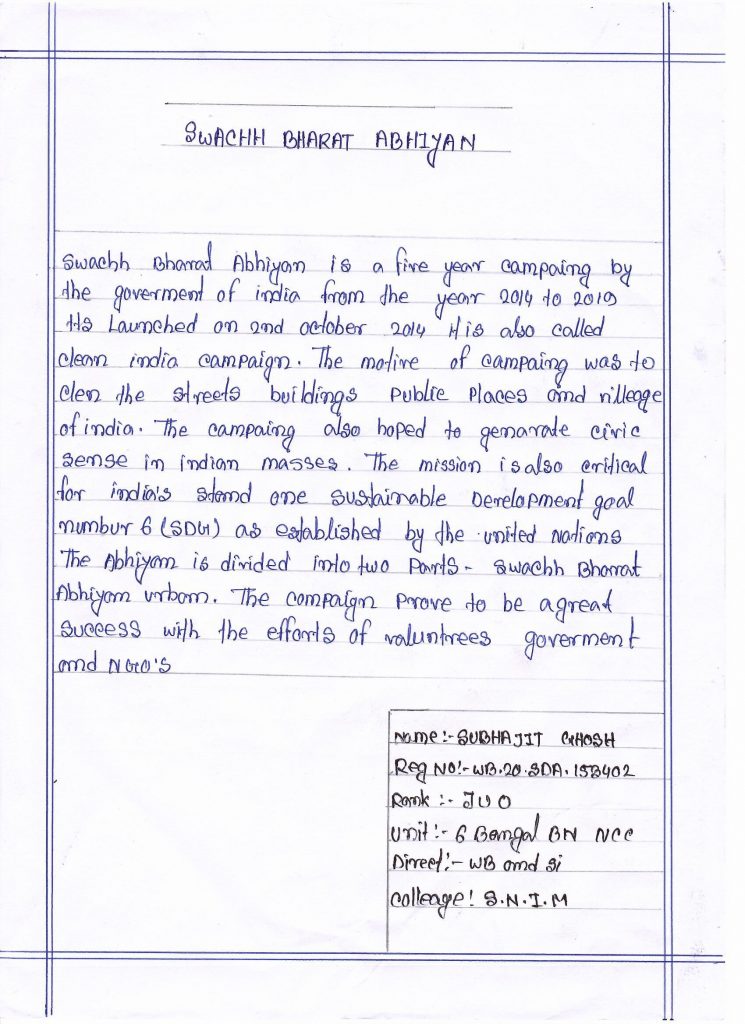 SWACHH BHARAT ABHIYAN
Swachh Bharat Abhiyan is a five year campaing by
the goverment of india from the year 2014 to 2019
Its Launched on 2nd october 2014 It is also called
clean india campaign. The motive of campaing was to
clen the streets buildings Public Places and villeage
of india. The campaing also hoped to genarate civic
sense in indian masses. The mission is also critical
for india's stand one sustainable Development goal
numbur 6 (SDG) as established by the united Nations
The Abhiyan is divided into two Parts - Swachh Bharat
Abhiyan urban. The campaign Prove to be a great
success with the efforts of valuntrees goverment
and NGO'S
Name:- SUBHAJIT GHOSH
Reg NO:- WB.20.SDA.153402
Rank :- JUO
Unit:- 6 Bangal BN NCC
Direct:- WB and Si
Colleage: S.N.I.M